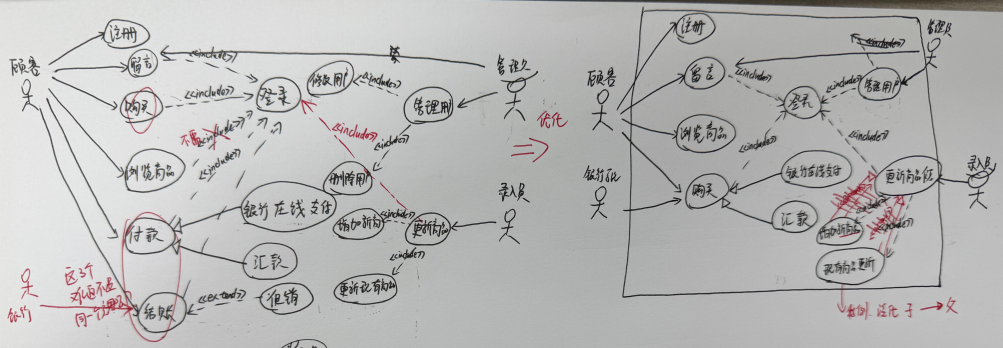 注册
顾客
留言
<<include>>
购买
<<include>>
登录
修改用户
<<include>>
管理员
管理用户
不要
<<include>>
<<include>>
<<include>>
<<include>>
浏览商品
删除用户
录入员
付款
银行在线支付
增加新商品
<<include>>
更新商品
<<include>>
汇款
更新现有商品
结账
<<extend>>
促销
银行
这3个
同一个
优化
注册
管理员
<<include>>
顾客
留言
<<include>>
登录
<<include>>
管理用户
浏览商品
<<include>>
<<include>>
录入员
银行
购买
银行在线支付
更新商品
汇款
增加新商品
<<include>>
<<include>>
现有商品更新
泛化 子 → 父